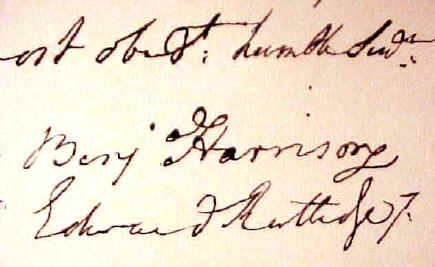 ost obedt. humble Servts.
Benj Harrison
Edward Rutledge